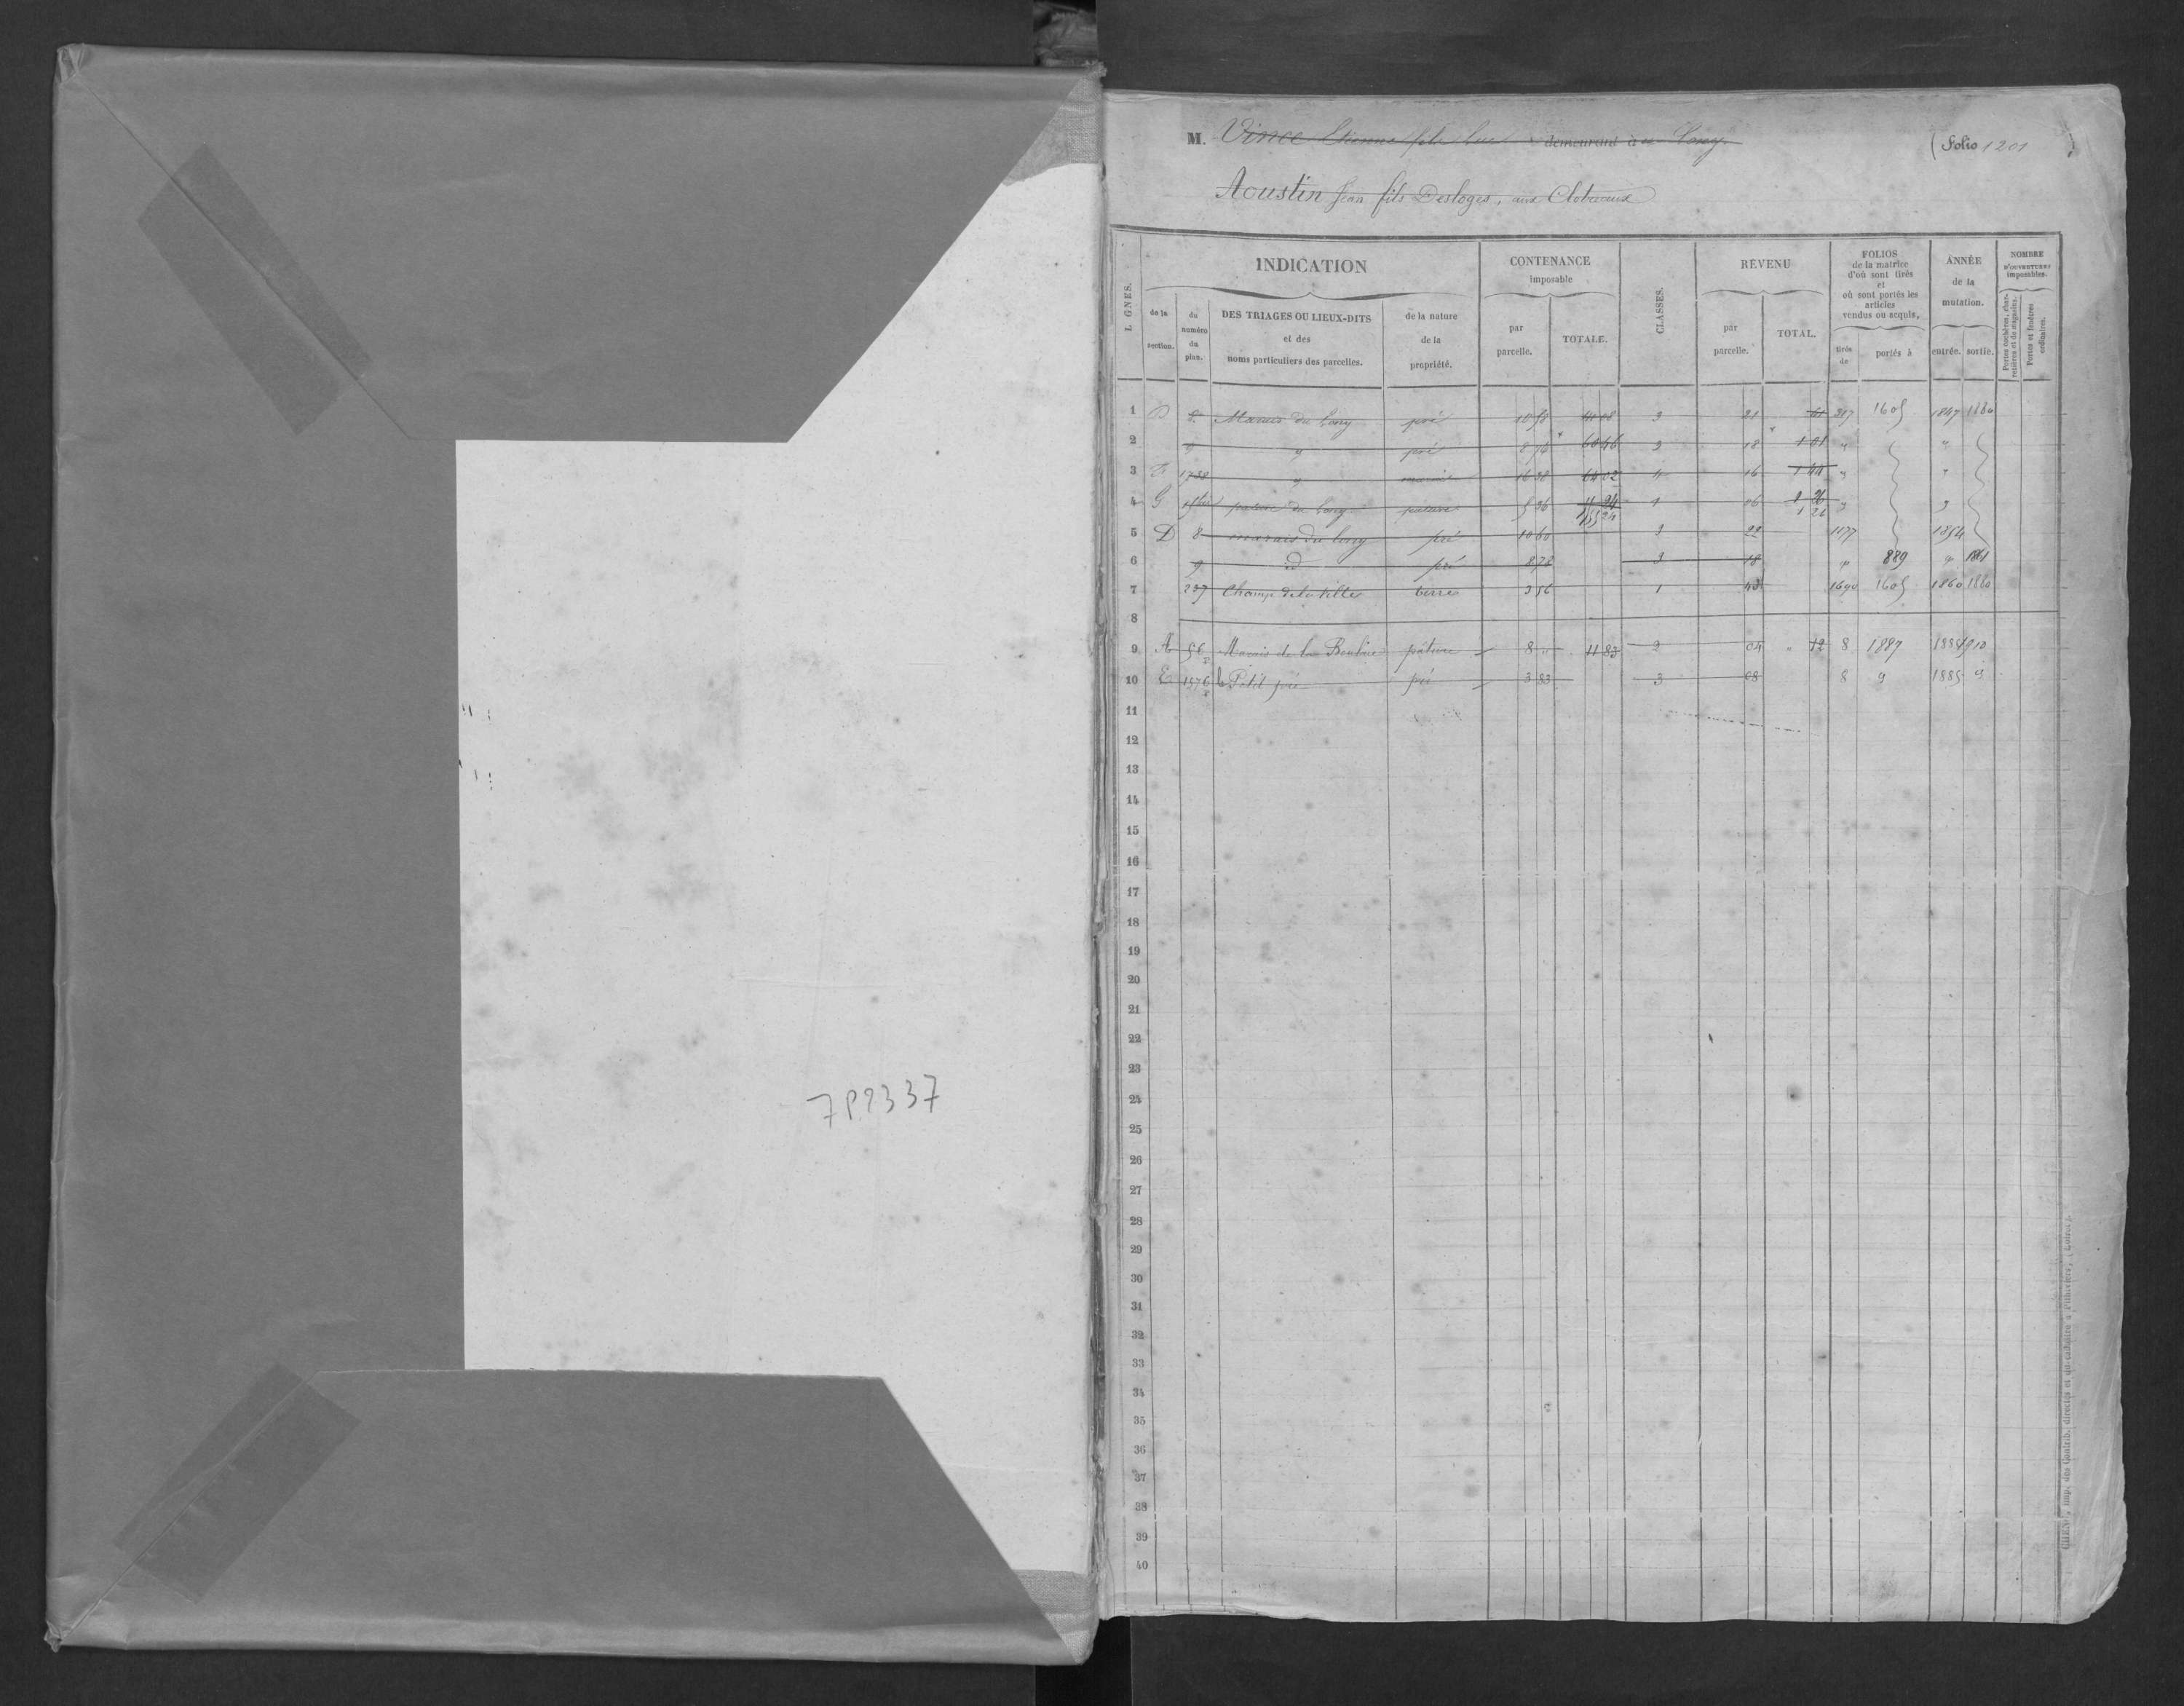 7P2337
M. Vince Etienne fils Luc demeurant à Lony
Folio 1201
Aoustin Jean fils Desloges, aux Clotureaux
LIGNES.
INDICATION
de la section.
du numéro du plan.
DES TRIAGES OU LIEUX-DITS
et des
noms particuliers des parcelles.
de la nature
de la
propriété.
CONTENANCE
imposable
par
parcelle.
TOTALE.
CLASSES.
REVENU
par
parcelle.
TOTAL.
FOLIOS
de la matrice
d'où sont tirés
et
où sont portés les
articles
vendus ou acquis,
tirés
de
portés à
ANNÉE
de la
mutation.
entrée. sortie.
NOMBRE
D'OUVERTURES
imposables.
Portes cochères, charretières et de magasins.
Portes et fenêtres ordinaires.
1 D 8 Marais du Lony pré 10 58 41 08 3 21 61 217 1605 1847 1880
2 9 " pré 8 74 60 46 3 18 1 01 " "
3 E 1738 " 16 38 64 02 4 16 1 44 " "
4 G pature du Lony pature 5 36 1 06 1 26 "
1 26
5 D 8 marais du Lony pré 10 60 3 22 1177 1854
6 9 id pré 8 78 3 18 " 889 " 1861
7 237 Champ de la Ville terre 3 56 1 43 1690 1605 1860 1880
8
9 A 56 p Marais de la Boulaie pâture 8 " 11 83 2 04 " 12 8 1887 1885 1910
10 E 1576 p le Petit pré pré 3 83 3 08 8 9 1885 9
11
12
13
14
15
16
17
18
19
20
21
22
23
24
25
26
27
28
29
30
31
32
33
34
35
36
37
38
39
40
imp. des Contrib. directes et du cadastre à Pithiviers, (Loiret).